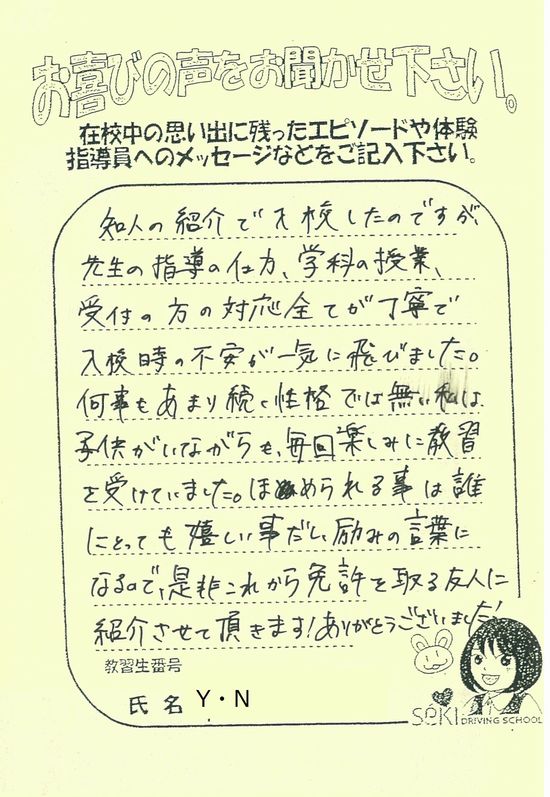 お喜びの声をお聞かせ下さい。
在校中の思い出に残ったエピソードや体験
指導員へのメッセージなどをご記入下さい。
知人の紹介で入校したのですが、
先生の指導の仕方、学科の授業、
受付の方の対応全てが丁寧で
入校時の不安が一気に飛びました。
何事もあまり続く性格では無い私は
子供がいながらも、毎回楽しみに教習
を受けていました。ほめられる事は誰
にとっても嬉しい事だし、励みの言葉に
なるので、是非これから免許を取る友人に
紹介させて頂きます!ありがとうございました!
教習生番号
氏名 Y・N
SéKI DRIVING SCHOOL